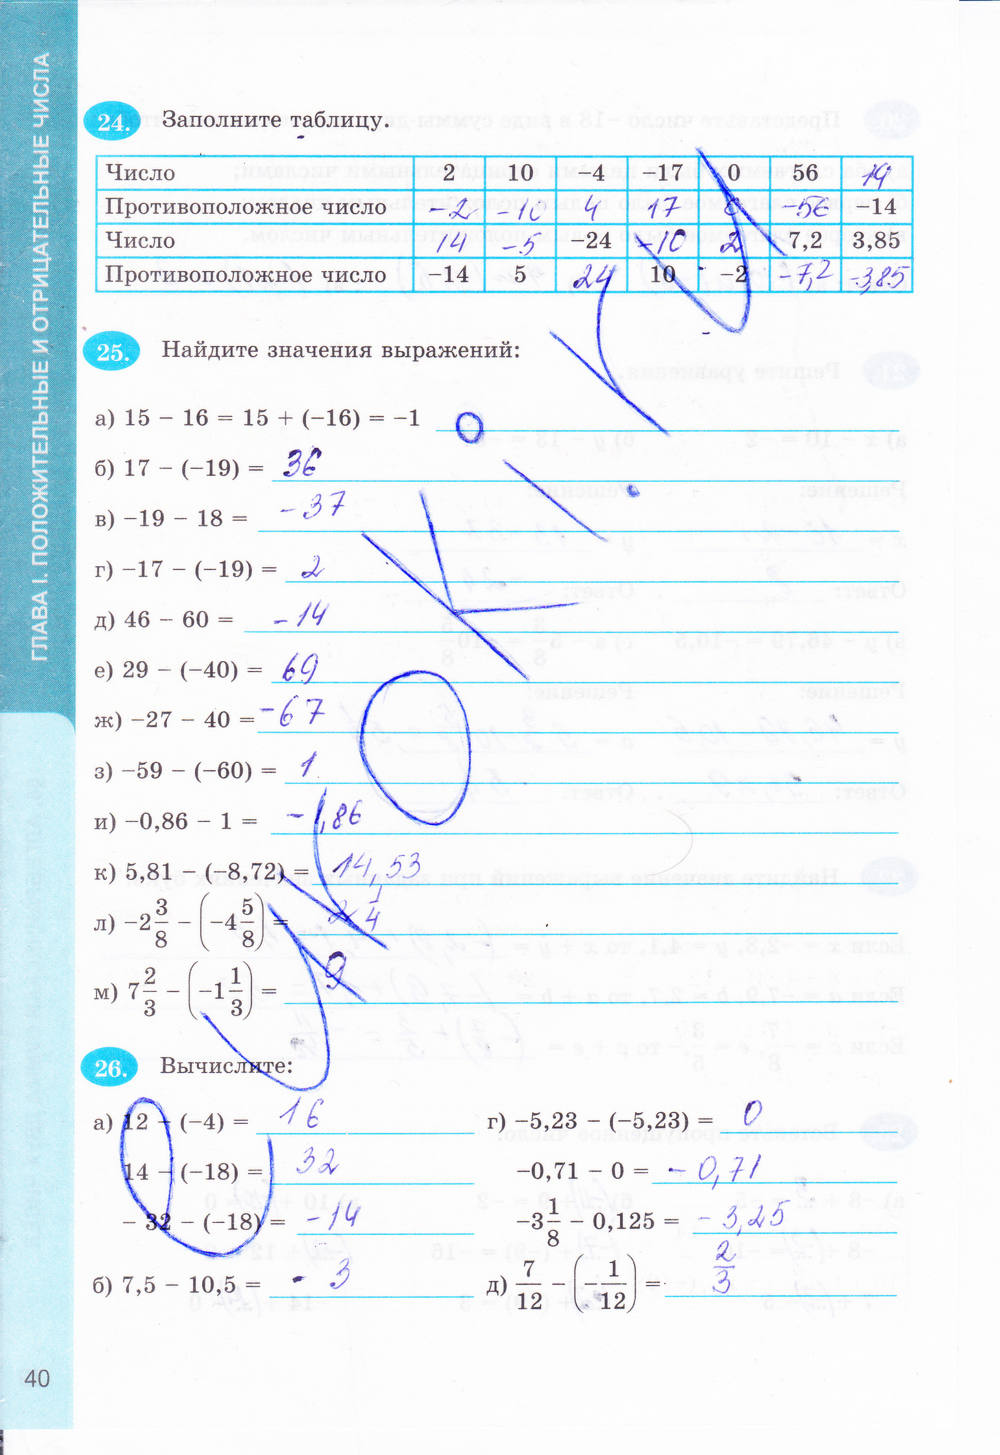 ГЛАВА I. ПОЛОЖИТЕЛЬНЫЕ И ОТРИЦАТЕЛЬНЫЕ ЧИСЛА
24. Заполните таблицу.
Число 2 10 -4 -17 0 56 14
Противоположное число -2 -10 4 17 0 -56 -14
Число 14 -5 -24 -10 2 7,2 3,85
Противоположное число -14 5 24 10 -2 -7,2 -3,85
25. Найдите значения выражений:
а) 15 - 16 = 15 + (-16) = -1
б) 17 - (-19) = 36
в) -19 - 18 = -37
г) -17 - (-19) = 2
д) 46 - 60 = -14
е) 29 - (-40) = 69
ж) -27 - 40 = -67
з) -59 - (-60) = 1
и) -0,86 - 1 = -1,86
к) 5,81 - (-8,72) = 14,53
л) -2 3/8 - (-4 5/8) = 2 1/4
м) 7 2/3 - (-1 1/3) = 9
26. Вычислите:
а) 12 - (-4) = 16
14 - (-18) = 32
- 32 - (-18) = -14
б) 7,5 - 10,5 = - 3
г) -5,23 - (-5,23) = 0
-0,71 - 0 = -0,71
-3 1/8 - 0,125 = -3,25
д) 7/12 - (-1/12) = 2/3
40